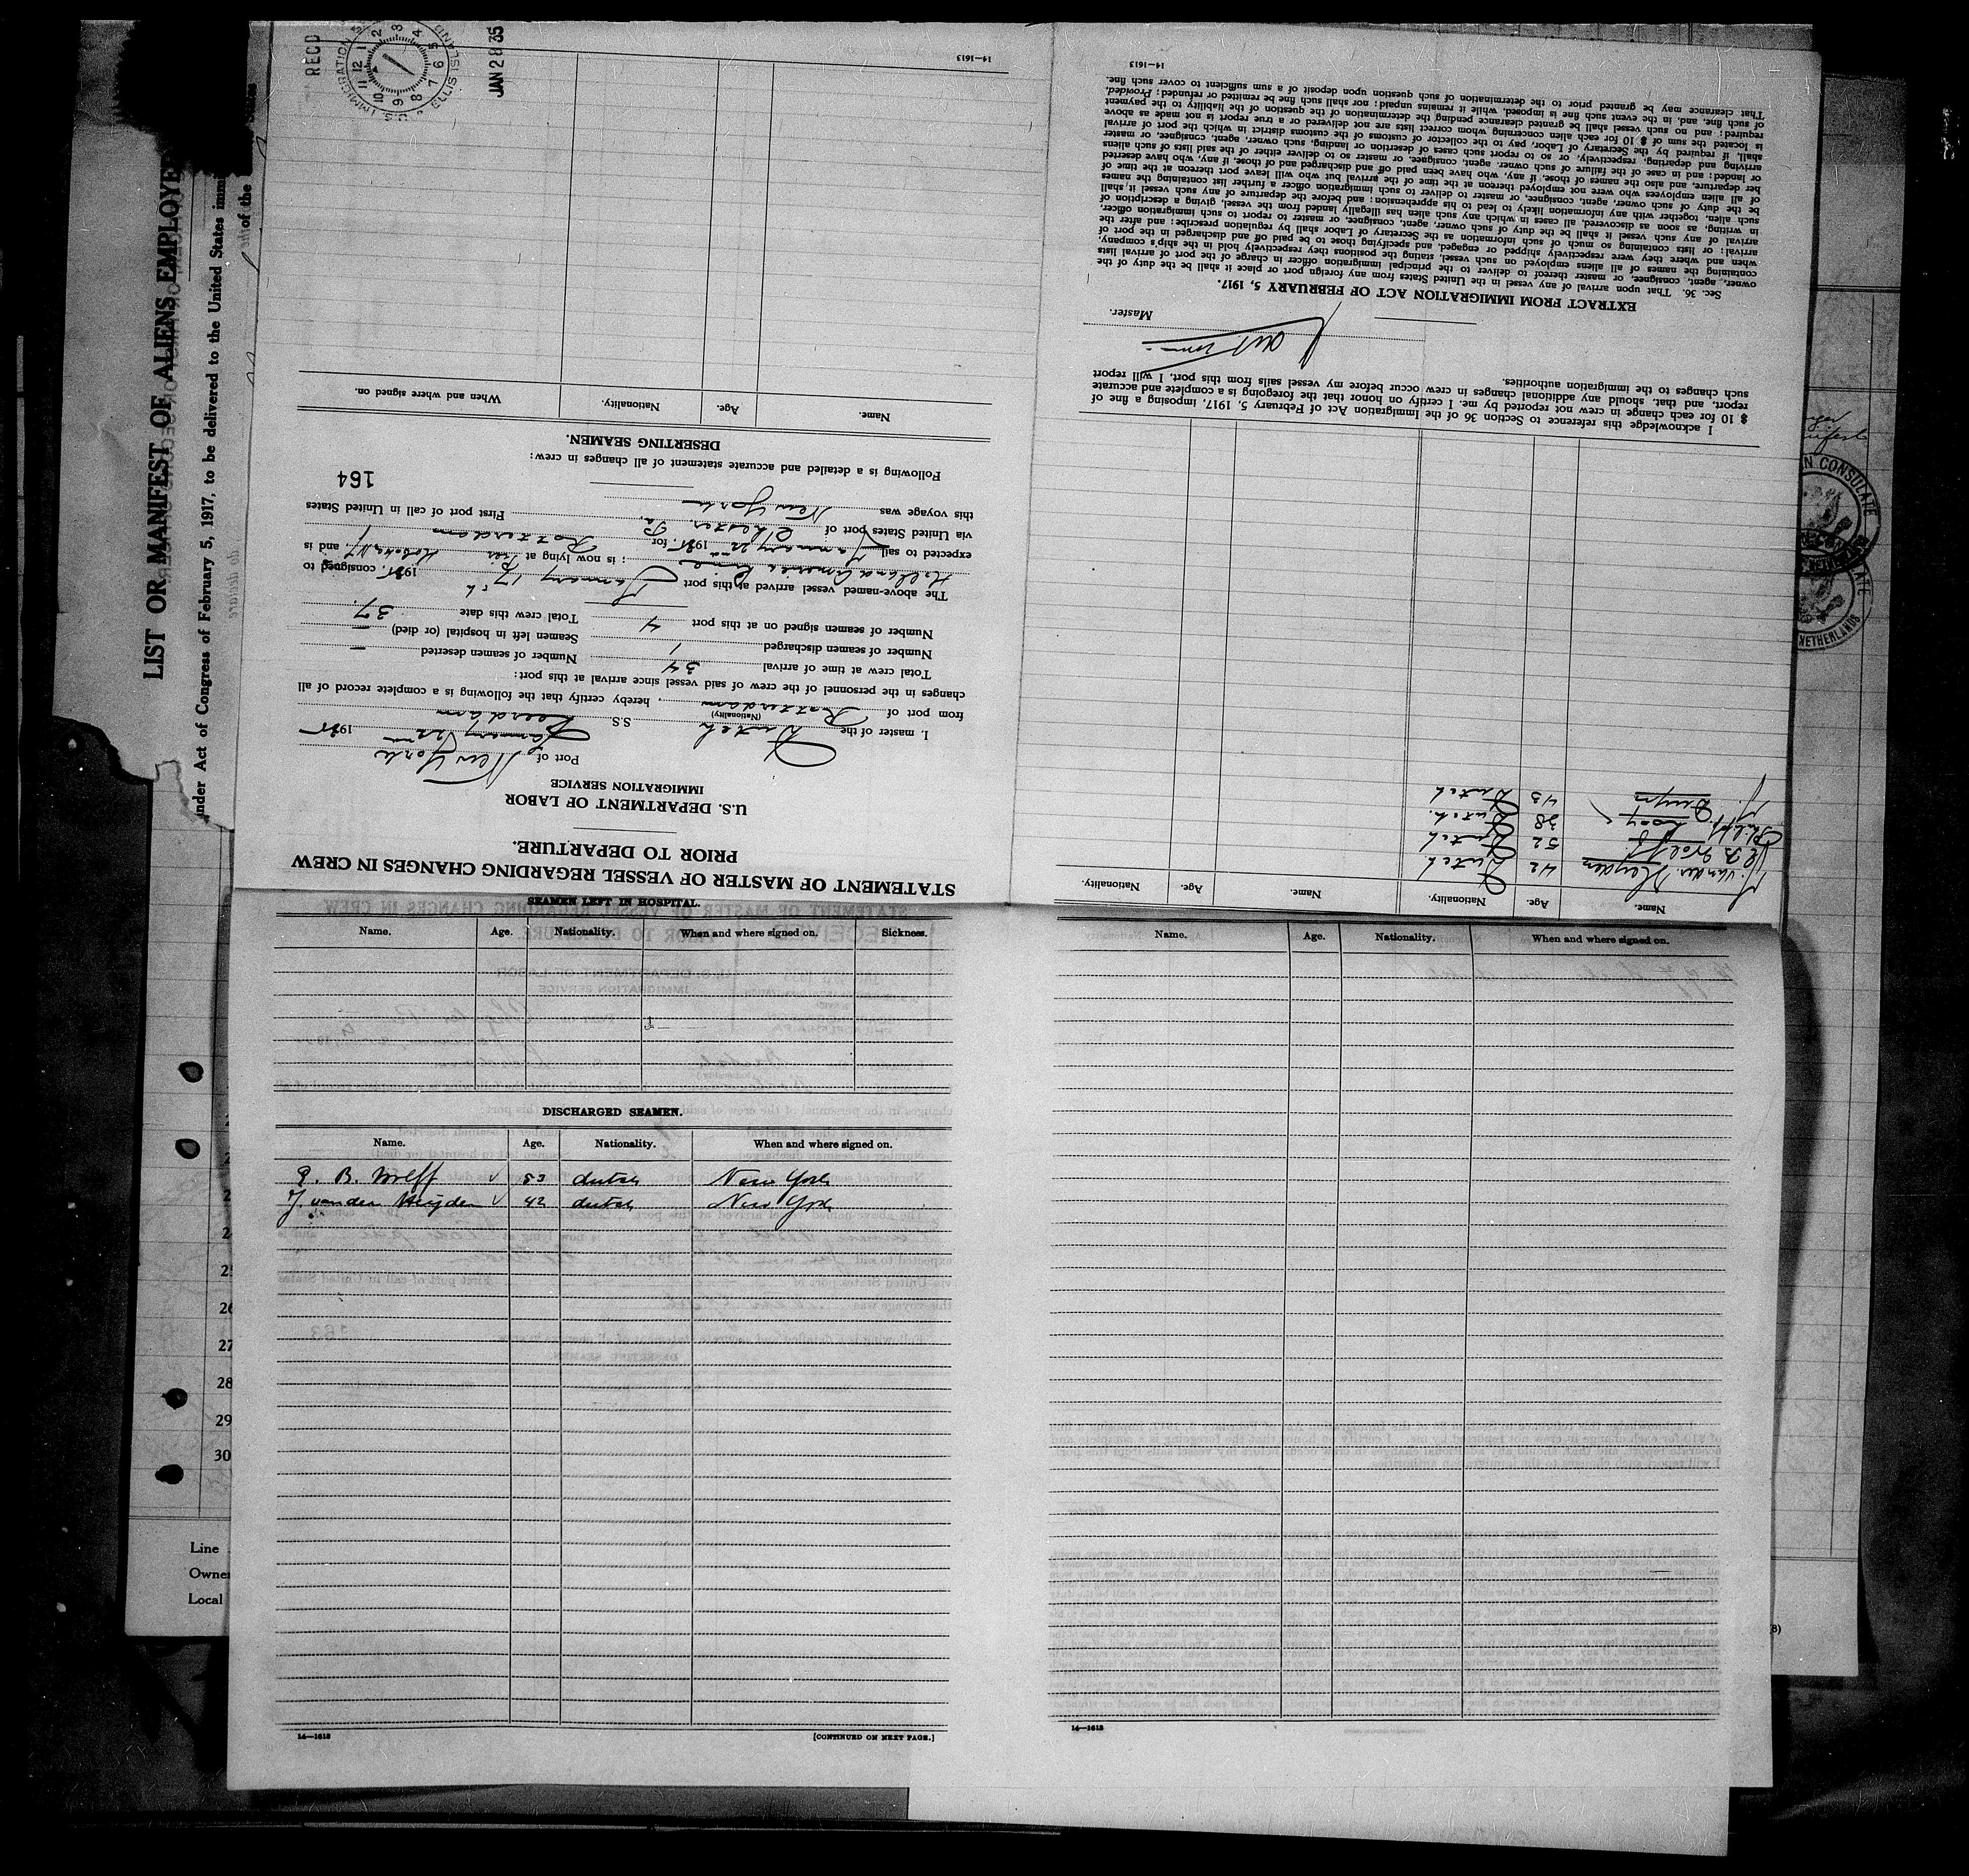 LIST OR MANIFEST OF ALIENS EMPLOYE
under Act of Congress of February 5, 1917, to be delivered to the United States immi
of the
RECD
U.S. IMMIGRATION S
ELLIS ISLAND
JAN 28 35
STATEMENT OF MASTER OF VESSEL REGARDING CHANGES IN CREW
PRIOR TO DEPARTURE.
U.S. DEPARTMENT OF LABOR
IMMIGRATION SERVICE
Port of New York
January 22 1935
I, master of the Dutch S.S. Beerdam
(Nationality)
from port of Rotterdam, hereby certify that the following is a complete record of all
changes in the personnel of the crew of said vessel since arrival at this port:
Total crew at time of arrival 34 Number of seamen deserted —
Number of seamen discharged 1 Seamen left in hospital (or died) —
Number of seamen signed on at this port 4 Total crew this date 37.
The above-named vessel arrived at this port January 17th 1935, consigned to
Holland America Line; is now lying at Pier Hoboken NJ, and is
expected to sail January 22nd 1935 for Rotterdam
via United States port of Chester Pa. First port of call in United States
this voyage was New York
164
Following is a detailed and accurate statement of all changes in crew:
DESERTING SEAMEN.
Name. Age. Nationality. When and where signed on.
14—1613
Name. Age. Nationality. Name. Age. Nationality.
J. van der Heyden 42 Dutch
E. B. Wolff 52 Dutch
Philip Looy 38 Dutch.
J. 43 Dutch
I acknowledge this reference to Section 36 of the Immigration Act of February 5, 1917, imposing a fine of
$10 for each change in crew not reported by me. I certify on honor that the foregoing is a complete and accurate
report, and that, should any additional changes in crew occur before my vessel sails from this port, I will report
such changes to the immigration authorities.
Master.
EXTRACT FROM IMMIGRATION ACT OF FEBRUARY 5, 1917.
Sec. 36. That upon arrival of any vessel in the United States from any foreign port or place it shall be the duty of the
owner, agent, consignee, or master thereof to deliver to the principal immigration officer in charge of the port of arrival lists
containing the names of all aliens employed on such vessel, stating the positions they respectively hold in the ship's company,
when and where they were respectively shipped or engaged, and specifying those to be paid off and discharged in the port of
arrival; or lists containing so much of such information as the Secretary of Labor shall by regulation prescribe; and after the
arrival of any such vessel it shall be the duty of such owner, agent, consignee, or master to report to such immigration officer,
in writing, as soon as discovered, all cases in which any such alien has illegally landed from the vessel, giving a description of
such alien, together with any information likely to lead to his apprehension; and before the departure of any such vessel it shall
be the duty of such owner, agent, consignee, or master to deliver to such immigration officer a further list containing the names
of all alien employees who were not employed thereon at the time of the arrival but who will leave port thereon at the time of
her departure, and also the names of those, if any, who have been paid off and discharged and of those, if any, who have deserted
or landed; and in case of the failure of such owner, agent, consignee, or master so to deliver either of the said lists of such aliens
arriving and departing, respectively, or so to report such cases of desertion or landing, such owner, agent, consignee, or master
shall, if required by the Secretary of Labor, pay to the collector of customs of the customs district in which the port of arrival
is located the sum of $10 for each alien concerning whom correct lists are not delivered or a true report is not made as above
required; and no such vessel shall be granted clearance pending the determination of the question of the liability to the payment
of such fine, and, in the event such fine is imposed, while it remains unpaid; nor shall such fine be remitted or refunded: Provided,
That clearance may be granted prior to the determination of such question upon deposit of a sum sufficient to cover such fine.
14—1613
N CONSULATE
NETHERLANDS
SEAMEN LEFT IN HOSPITAL.
Name. Age. Nationality. When and where signed on. Sickness.
DISCHARGED SEAMEN.
Name. Age. Nationality. When and where signed on.
E. B. Wolff √ 53 dutch New York
J. van der Heijden √ 42 dutch New York
14—1613
[CONTINUED ON NEXT PAGE.]
Name. Age. Nationality. When and where signed on.
14—1613
24
25
26
27
28
29
30
Line
Owner
Local